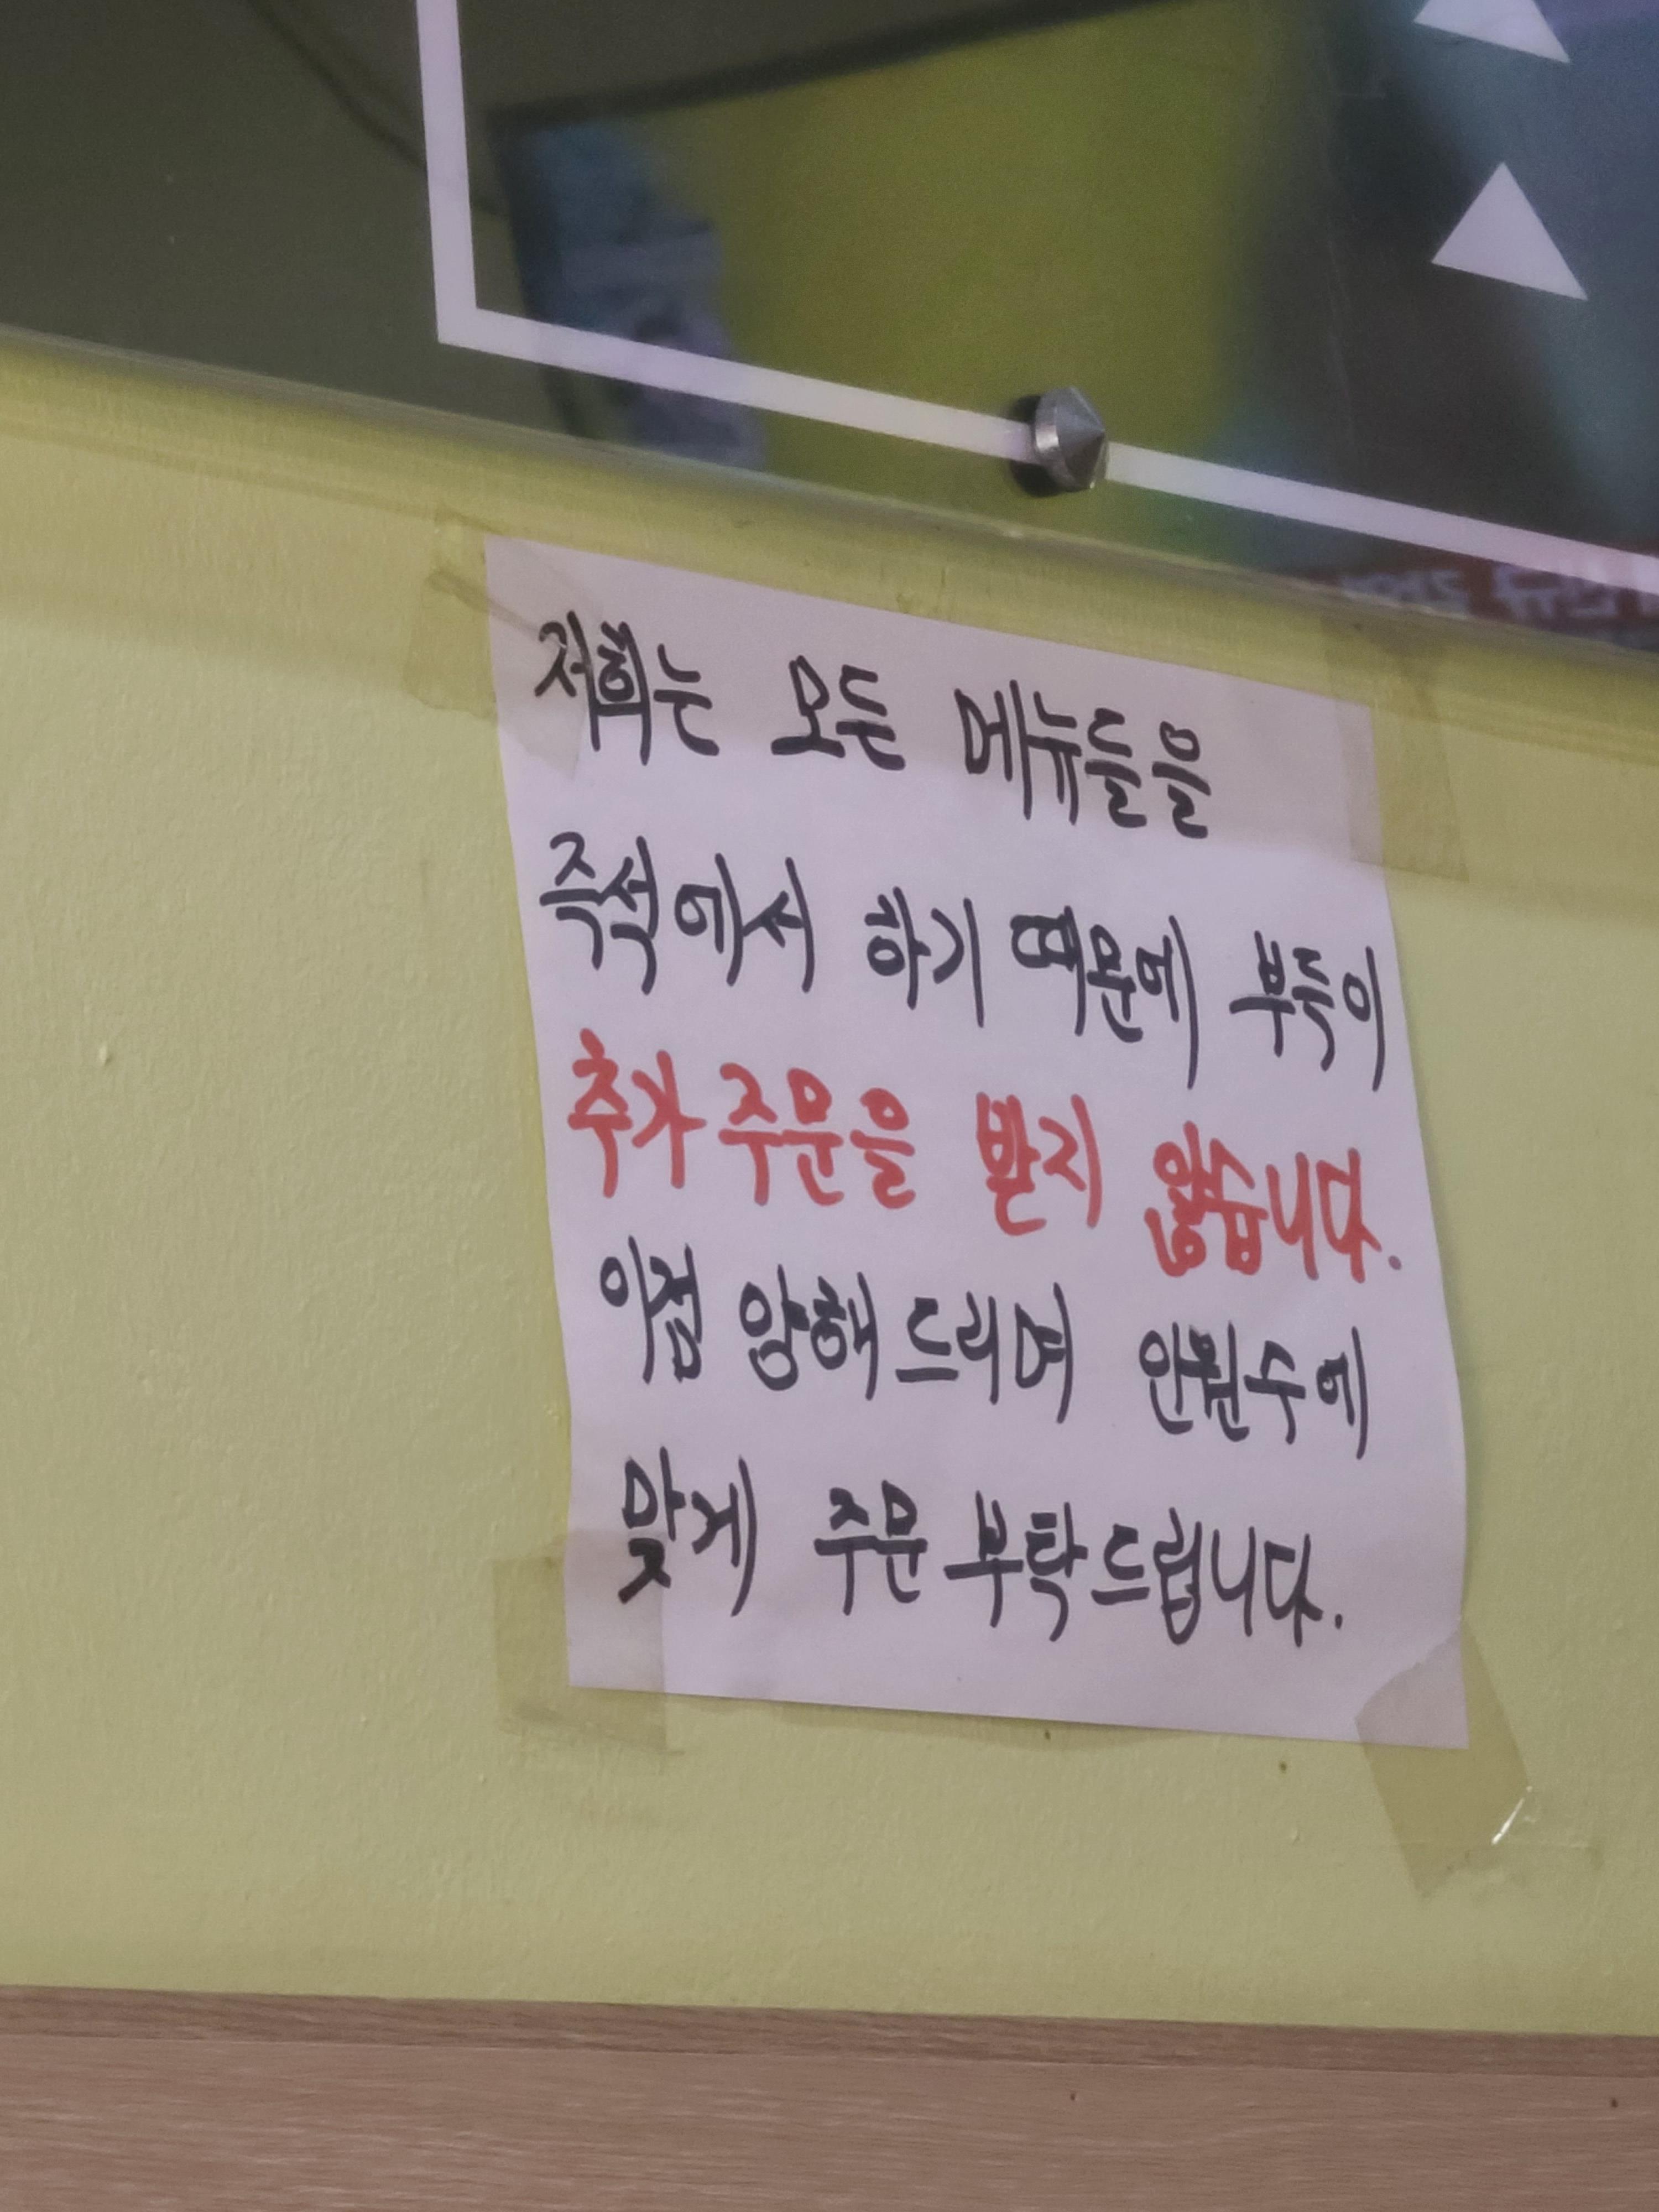 저희는 모든 메뉴들을
즉석에서 하기 때문에 부득이
추가 주문을 받지 않습니다.
이점 양해드리며 인원수에
맞게 주문 부탁드립니다.